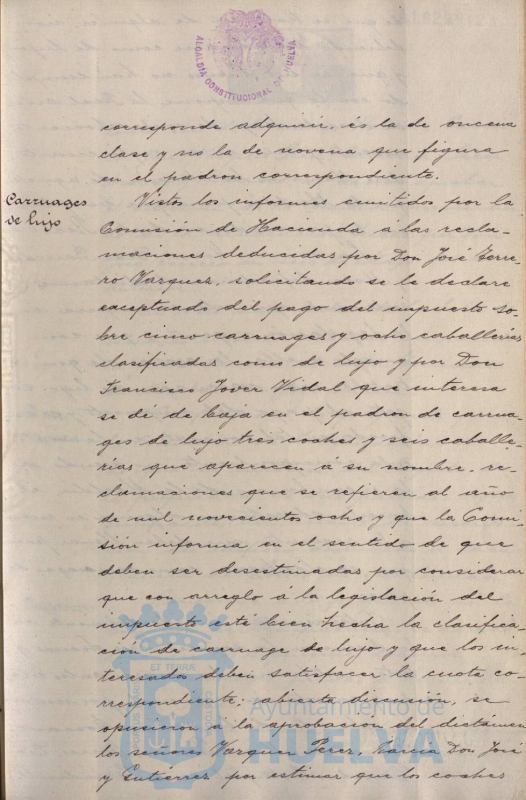 ALCALDÍA CONSTITUCIONAL DE HUELVA
corresponde adquirir, és la de oncena
clase y no la de novena que figura
en el padron correspondiente.
Carruages
de lujo
Vistos los informes emitidos por la
Comisión de Hacienda á las recla-
maciones deducidas por Don José Ferre-
ro Vazquez, solicitando se le declare
exceptuado del pago del impuesto so-
bre cinco carruages y ocho caballerias
clasificadas como de lujo y por Don
Francisco Jover Vidal que interesa
se dé de baja en el padron de carrua-
ges de lujo tres coches y seis caballe-
rias que aparecen á su nombre, re-
clamaciones que se refieren al año
de mil novecientos ocho y que la Comi-
sión informa en el sentido de que
deben ser desestimadas por considerar
que con arreglo á la legislación del
impuesto está bien hecha la clasifica-
ción de carruage de lujo y que los in-
teresados deben satisfacer la cuota co-
rrespondiente; abierta discusión, se
opusieron á la aprobación del dictámen
los señores Vazquez Perez, Garcia Don José
y Gutiérrez por estimar que los coches
Ayuntamiento de
HUELVA